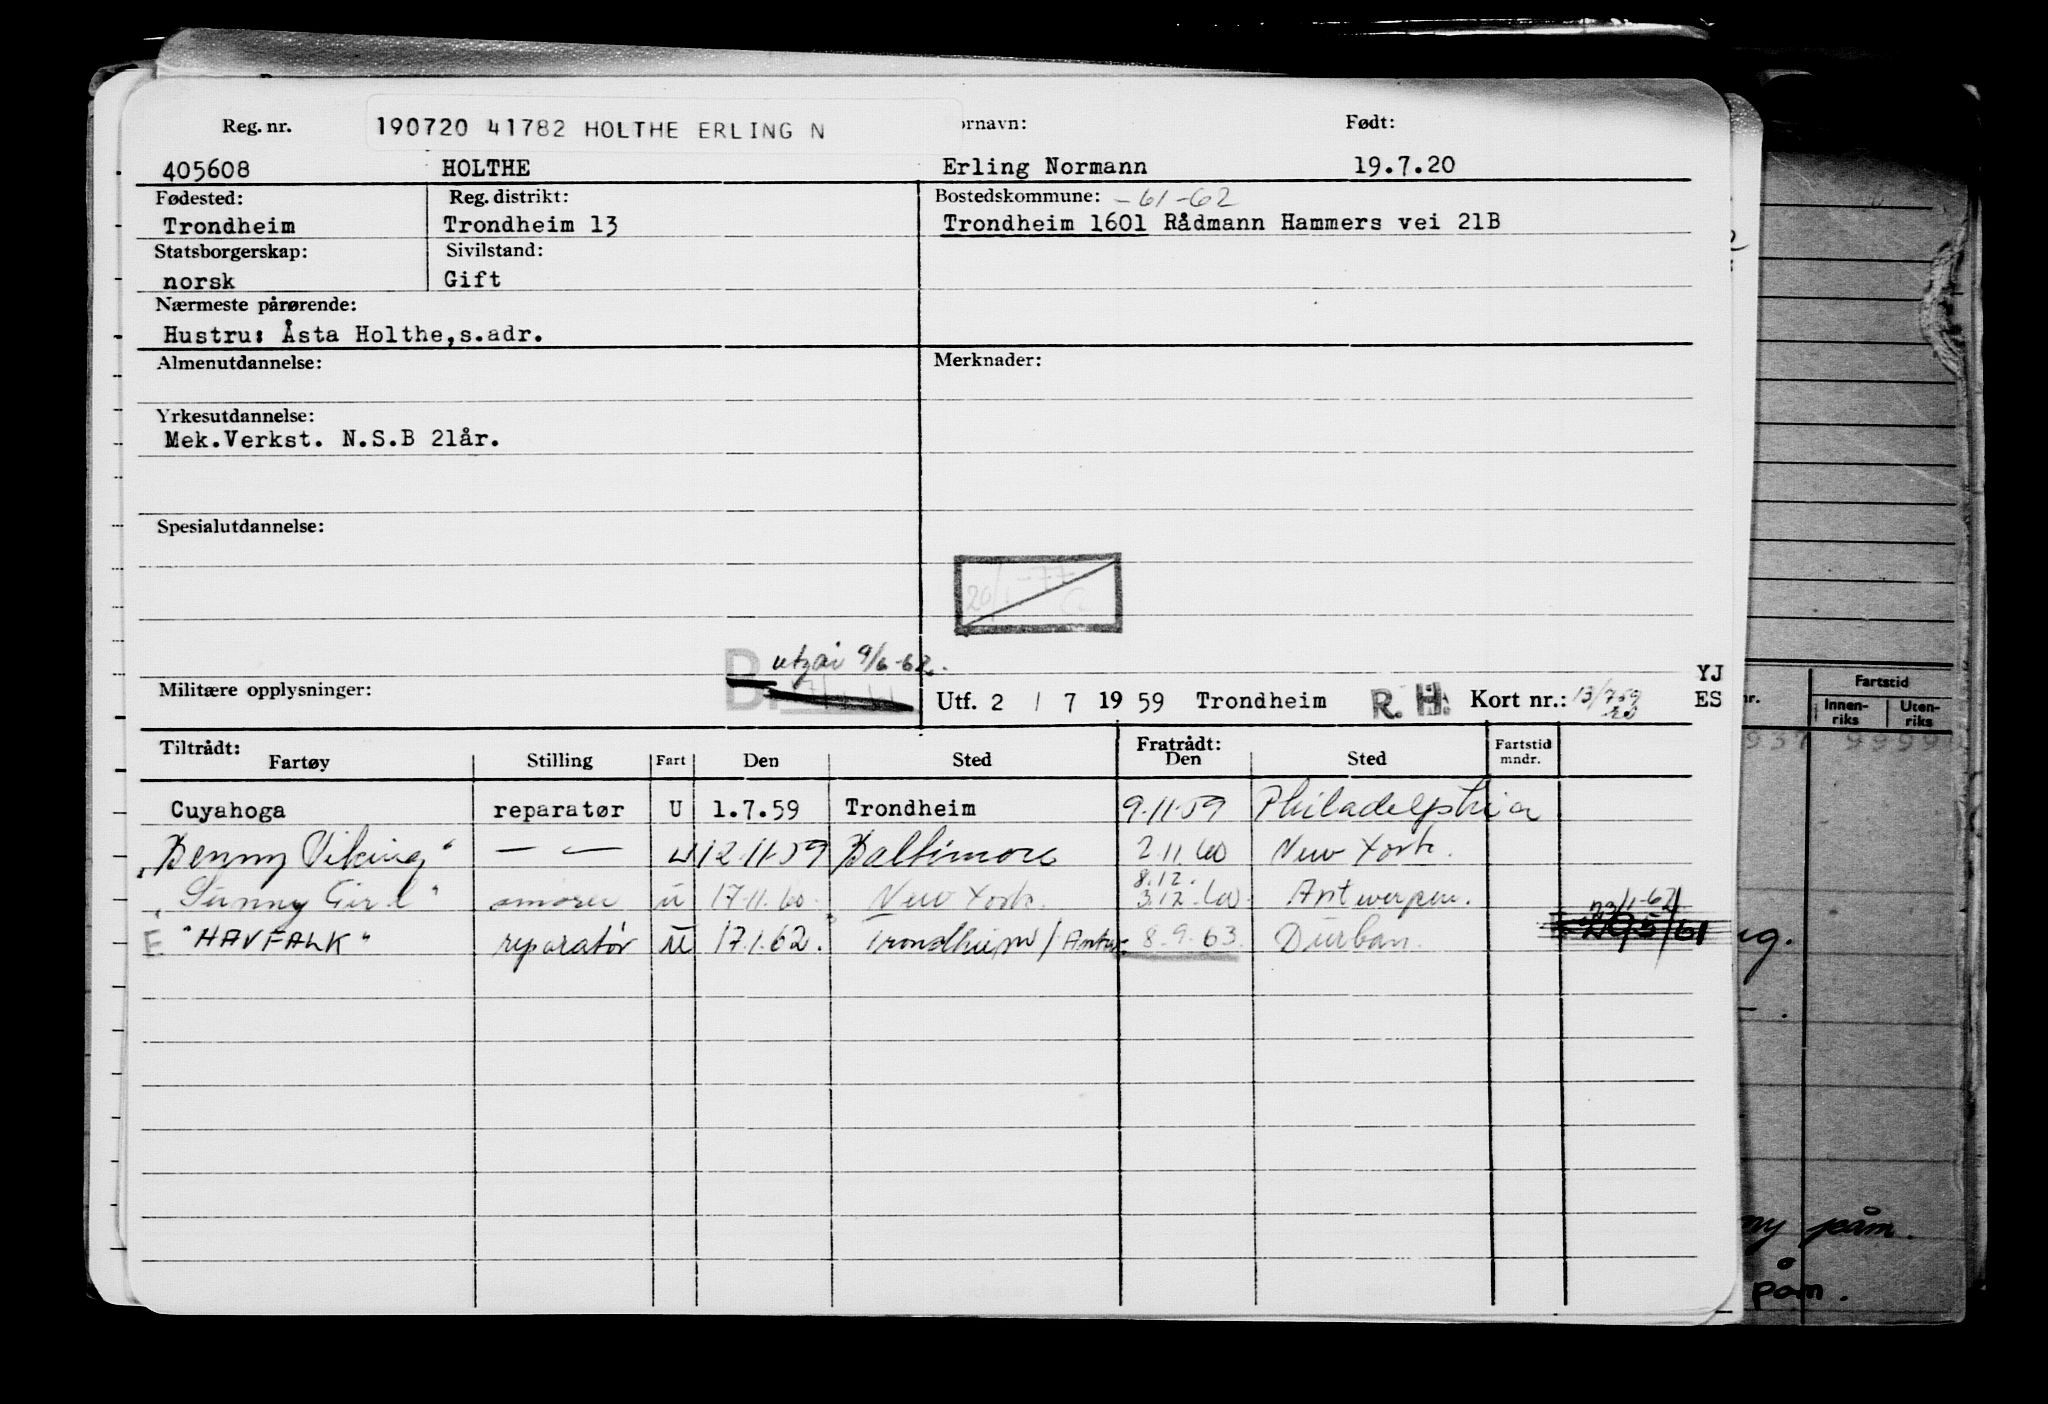 Reg. nr. 190720 41782 HOLTHE ERLING N ornavn: Født:
405608 HOLTHE Erling Normann 19.7.20
Fødested: Reg. distrikt: Bostedskommune: -61-62
Trondheim Trondheim 13 Trondheim 1601 Rådmann Hammers vei 21B
Statsborgerskap: Sivilstand:
norsk Gift
Nærmeste pårørende:
Hustru: Åsta Holthe,s.adr.
Almenutdannelse: Merknader:
Yrkesutdannelse:
Mek.Verkst. N.S.B 21år.
Spesialutdannelse:
utgår 9/6-62.
Militære opplysninger: Utf. 2 / 7 19 59 Trondheim R. H. Kort nr.: 13/7 59 YJ
ES
Tiltrådt: Fratrådt:
Fartøy Stilling Fart Den Sted Den Sted Fartstid mndr.
Cuyahoga reparatør U 1.7.59 Trondheim 9.11.59 Philadelphia
"Benny Viking" — — u 12.11.59 Baltimore 2.11.60 New York.
8.12.
"Sunny Girl" smører u 17.11.60. New York. 3.12.60. Antwerpen.
E "HAVFALK" reparatør u 17.1.62. Trondheim/Antw. 8.9.63. Durban.
Fartstid
Innen-riks Uten-riks
påm.
påm.